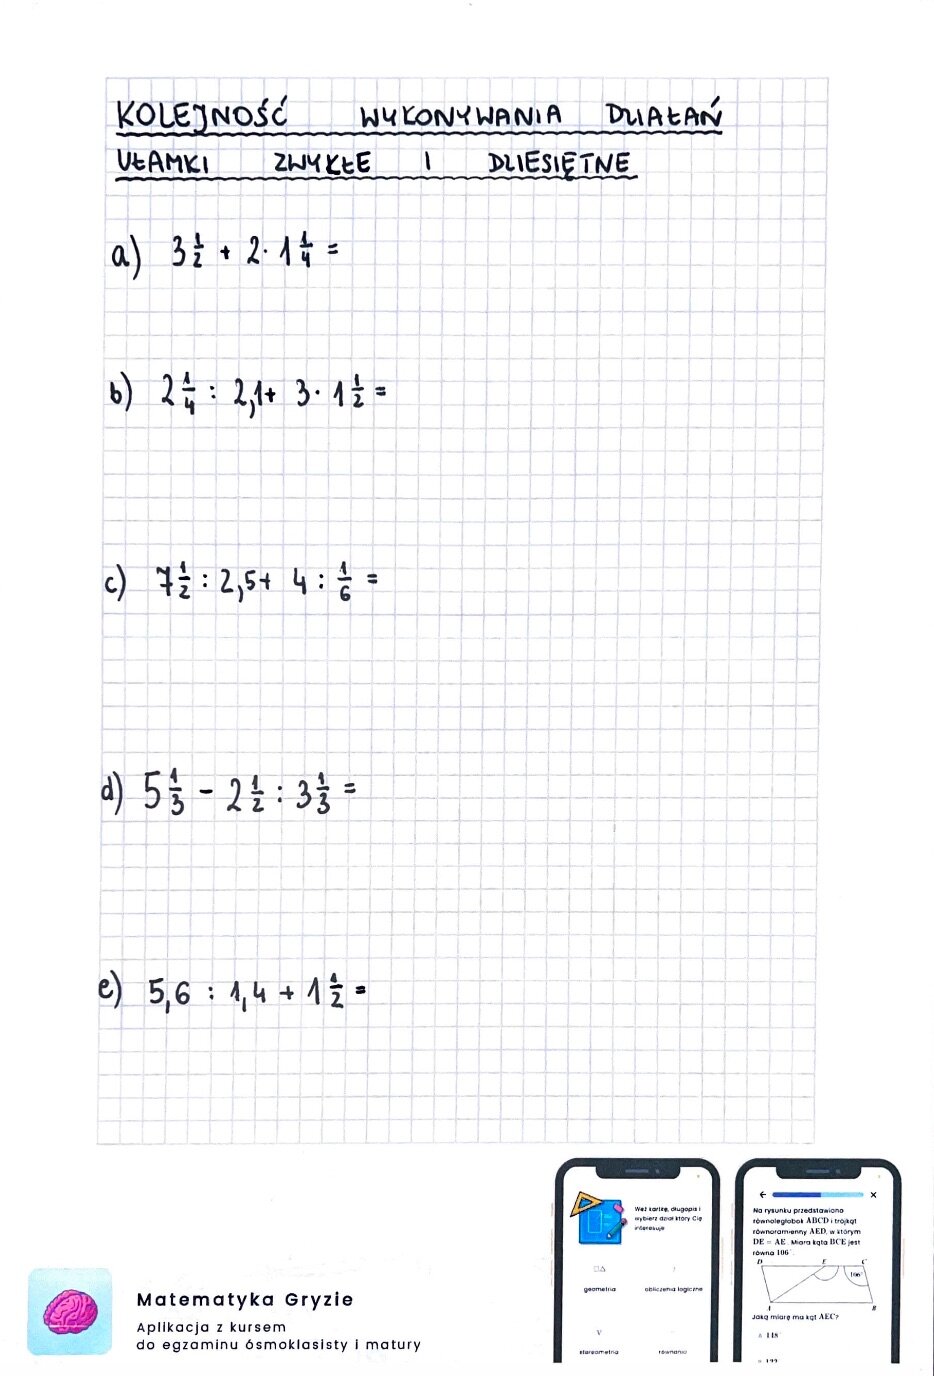 KOLEJNOŚĆ WYKONYWANIA DZIAŁAŃ
UŁAMKI ZWYKŁE I DZIESIĘTNE
a) 3 1/2 + 2 · 1 1/4 =
b) 2 1/4 : 2,1 + 3 · 1 1/2 =
c) 7 1/2 : 2,5 + 4 : 1/6 =
d) 5 1/3 - 2 1/2 : 3 1/3 =
e) 5,6 : 1,4 + 1 1/2 =
Matematyka Gryzie
Aplikacja z kursem
do egzaminu ósmoklasisty i matury
Weź kartkę, długopis i
wybierz dział który Cię
interesuje
geometria
obliczenia logiczne
stereometria
równania
Na rysunku przedstawiono
równoległobok ABCD i trójkąt
równoramienny AED, w którym
DE = AE. Miara kąta BCE jest
równa 106°.
D E C
106°
A B
Jaką miarę ma kąt AEC?
A 118°